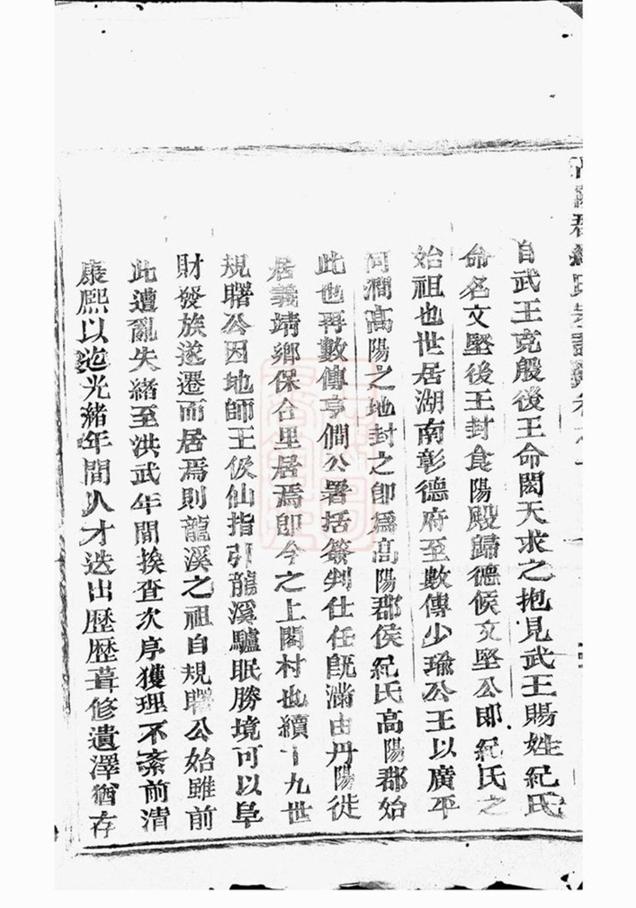 自武王克殷後王命閎夭求之抱見武王賜姓紀氏
命名文堅後王封食陽殿歸德候文堅公即紀氏之
始祖也世居湖南彰德府至數傳少瑜公王以廣平
河澗高陽之地封之卽爲高陽郡侯紀氏高陽郡始
此也再數傳亨僩公署括簽判仕任旣滿由丹陽徙
居義靖鄉保合里居焉卽今之上閣村也續十九世
規曙公因地師王伋仙指引龍溪驢眠勝境可以阜
財發族遂遷而居焉則龍溪之祖自規曙公始雖前
此遭亂失緒至洪武年間挨查次序獲理不紊前清
康熙以迨光緒年間人才迭出歷歷葺修遺澤猶存